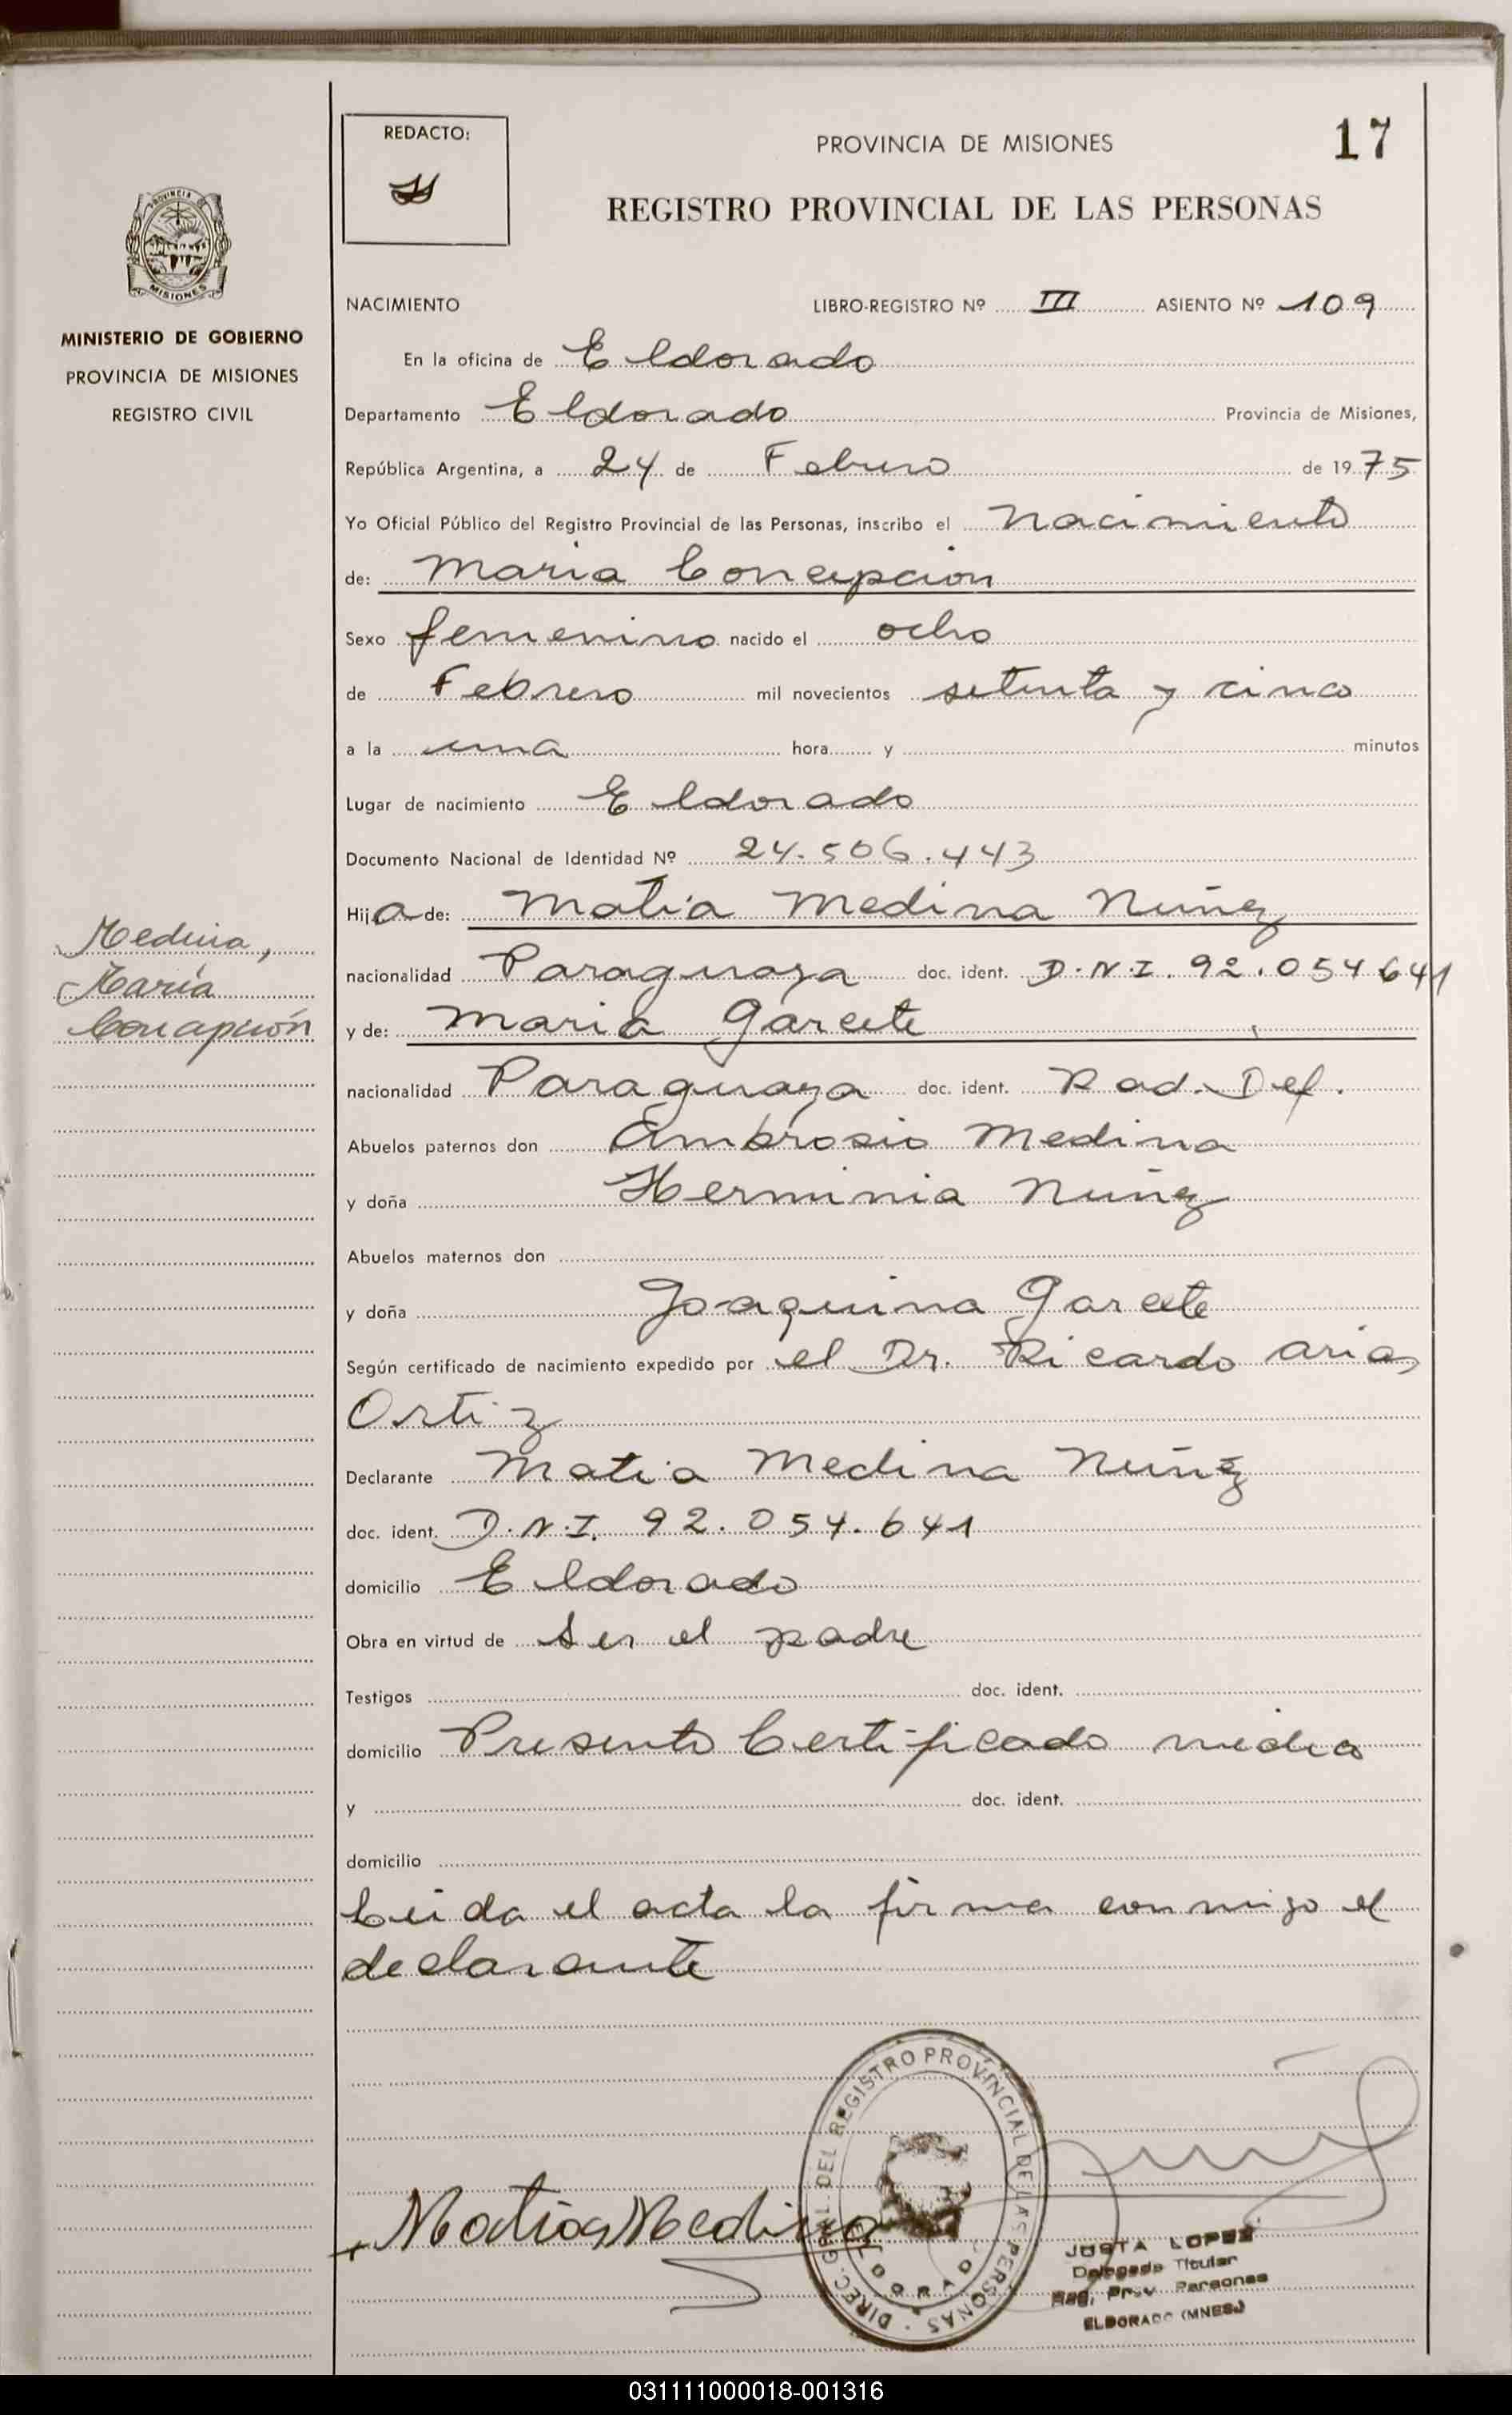 REDACTO:
PROVINCIA DE MISIONES
17
REGISTRO PROVINCIAL DE LAS PERSONAS
PROVINCIA DE
MISIONES
MINISTERIO DE GOBIERNO
PROVINCIA DE MISIONES
REGISTRO CIVIL
NACIMIENTO LIBRO-REGISTRO Nº III ASIENTO Nº 109
En la oficina de Eldorado
Departamento Eldorado Provincia de Misiones,
República Argentina, a 24 de Febrero de 1975
Yo Oficial Público del Registro Provincial de las Personas, inscribo el Nacimiento
de: Maria Concepcion
Sexo femenino nacido el ocho
de Febrero mil novecientos setenta y cinco
a la una hora y minutos
Lugar de nacimiento Eldorado
Documento Nacional de Identidad Nº 24.506.443
Hija de: Matia Medina Nuñez
Medina,
María
Concepción
nacionalidad Paraguaya doc. ident. D.N.I. 92.054641
y de: Maria Garcete
nacionalidad Paraguaya doc. ident. Rad. Def.
Abuelos paternos don Ambrosio Medina
y doña Herminia Nuñez
Abuelos maternos don
y doña Joaquina Garcete
Según certificado de nacimiento expedido por el Dr. Ricardo Arias
Ortiz
Declarante Matia Medina Nuñez
doc. ident. D.N.I. 92.054.641
domicilio Eldorado
Obra en virtud de ser el padre
Testigos doc. ident.
domicilio Presento Certificado médico
y doc. ident.
domicilio
Leida el acta la firma conmigo el
declarante
Matias Medina
DIREC. GRAL. DEL REGISTRO PROVINCIAL DE LAS PERSONAS
ELDORADO
JUSTA LOPEZ
Delegada Titular
Reg. Prov. Personas
ELDORADO (MNES.)
031111000018-001316